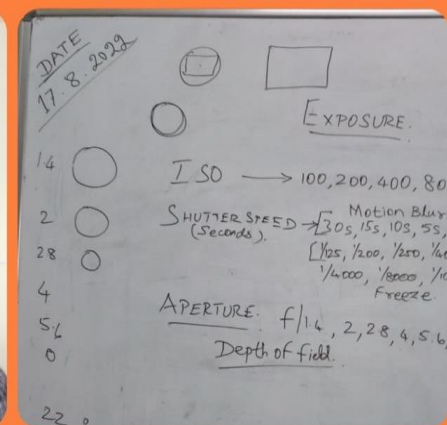 DATE
17.8.2022
EXPOSURE.
1.4
ISO → 100, 200, 400, 80
2
SHUTTER SPEED → [30s, 15s, 10s, 5s,
Motion Blur
(Seconds).
[1/125, 1/200, 1/250, 1/40
2.8
1/4000, 1/8000, 1/10
Freeze
4
APERTURE. f/1.4, 2, 2.8, 4, 5.6,
5.6
Depth of field.
0
22